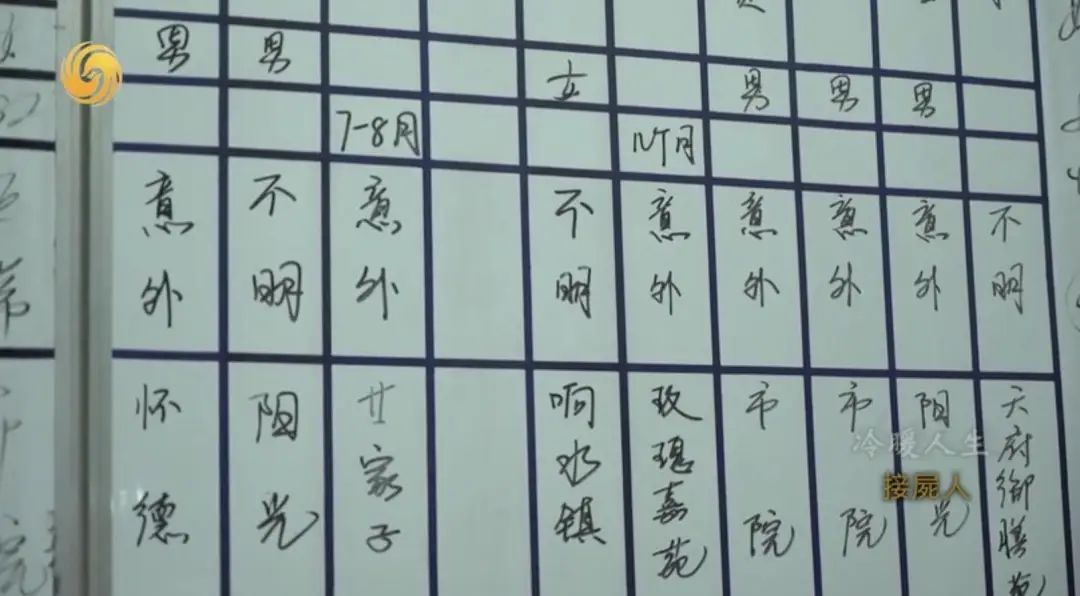 男 男 女 男 男 男
7-8月 10个月
意外 不明 意外 不明 意外 意外 意外 意外 不明
怀德 阳光 廿家子 响水镇 玫瑰嘉苑 市院 市院 阳光 天府御膳苑
冷暖人生
接屍人